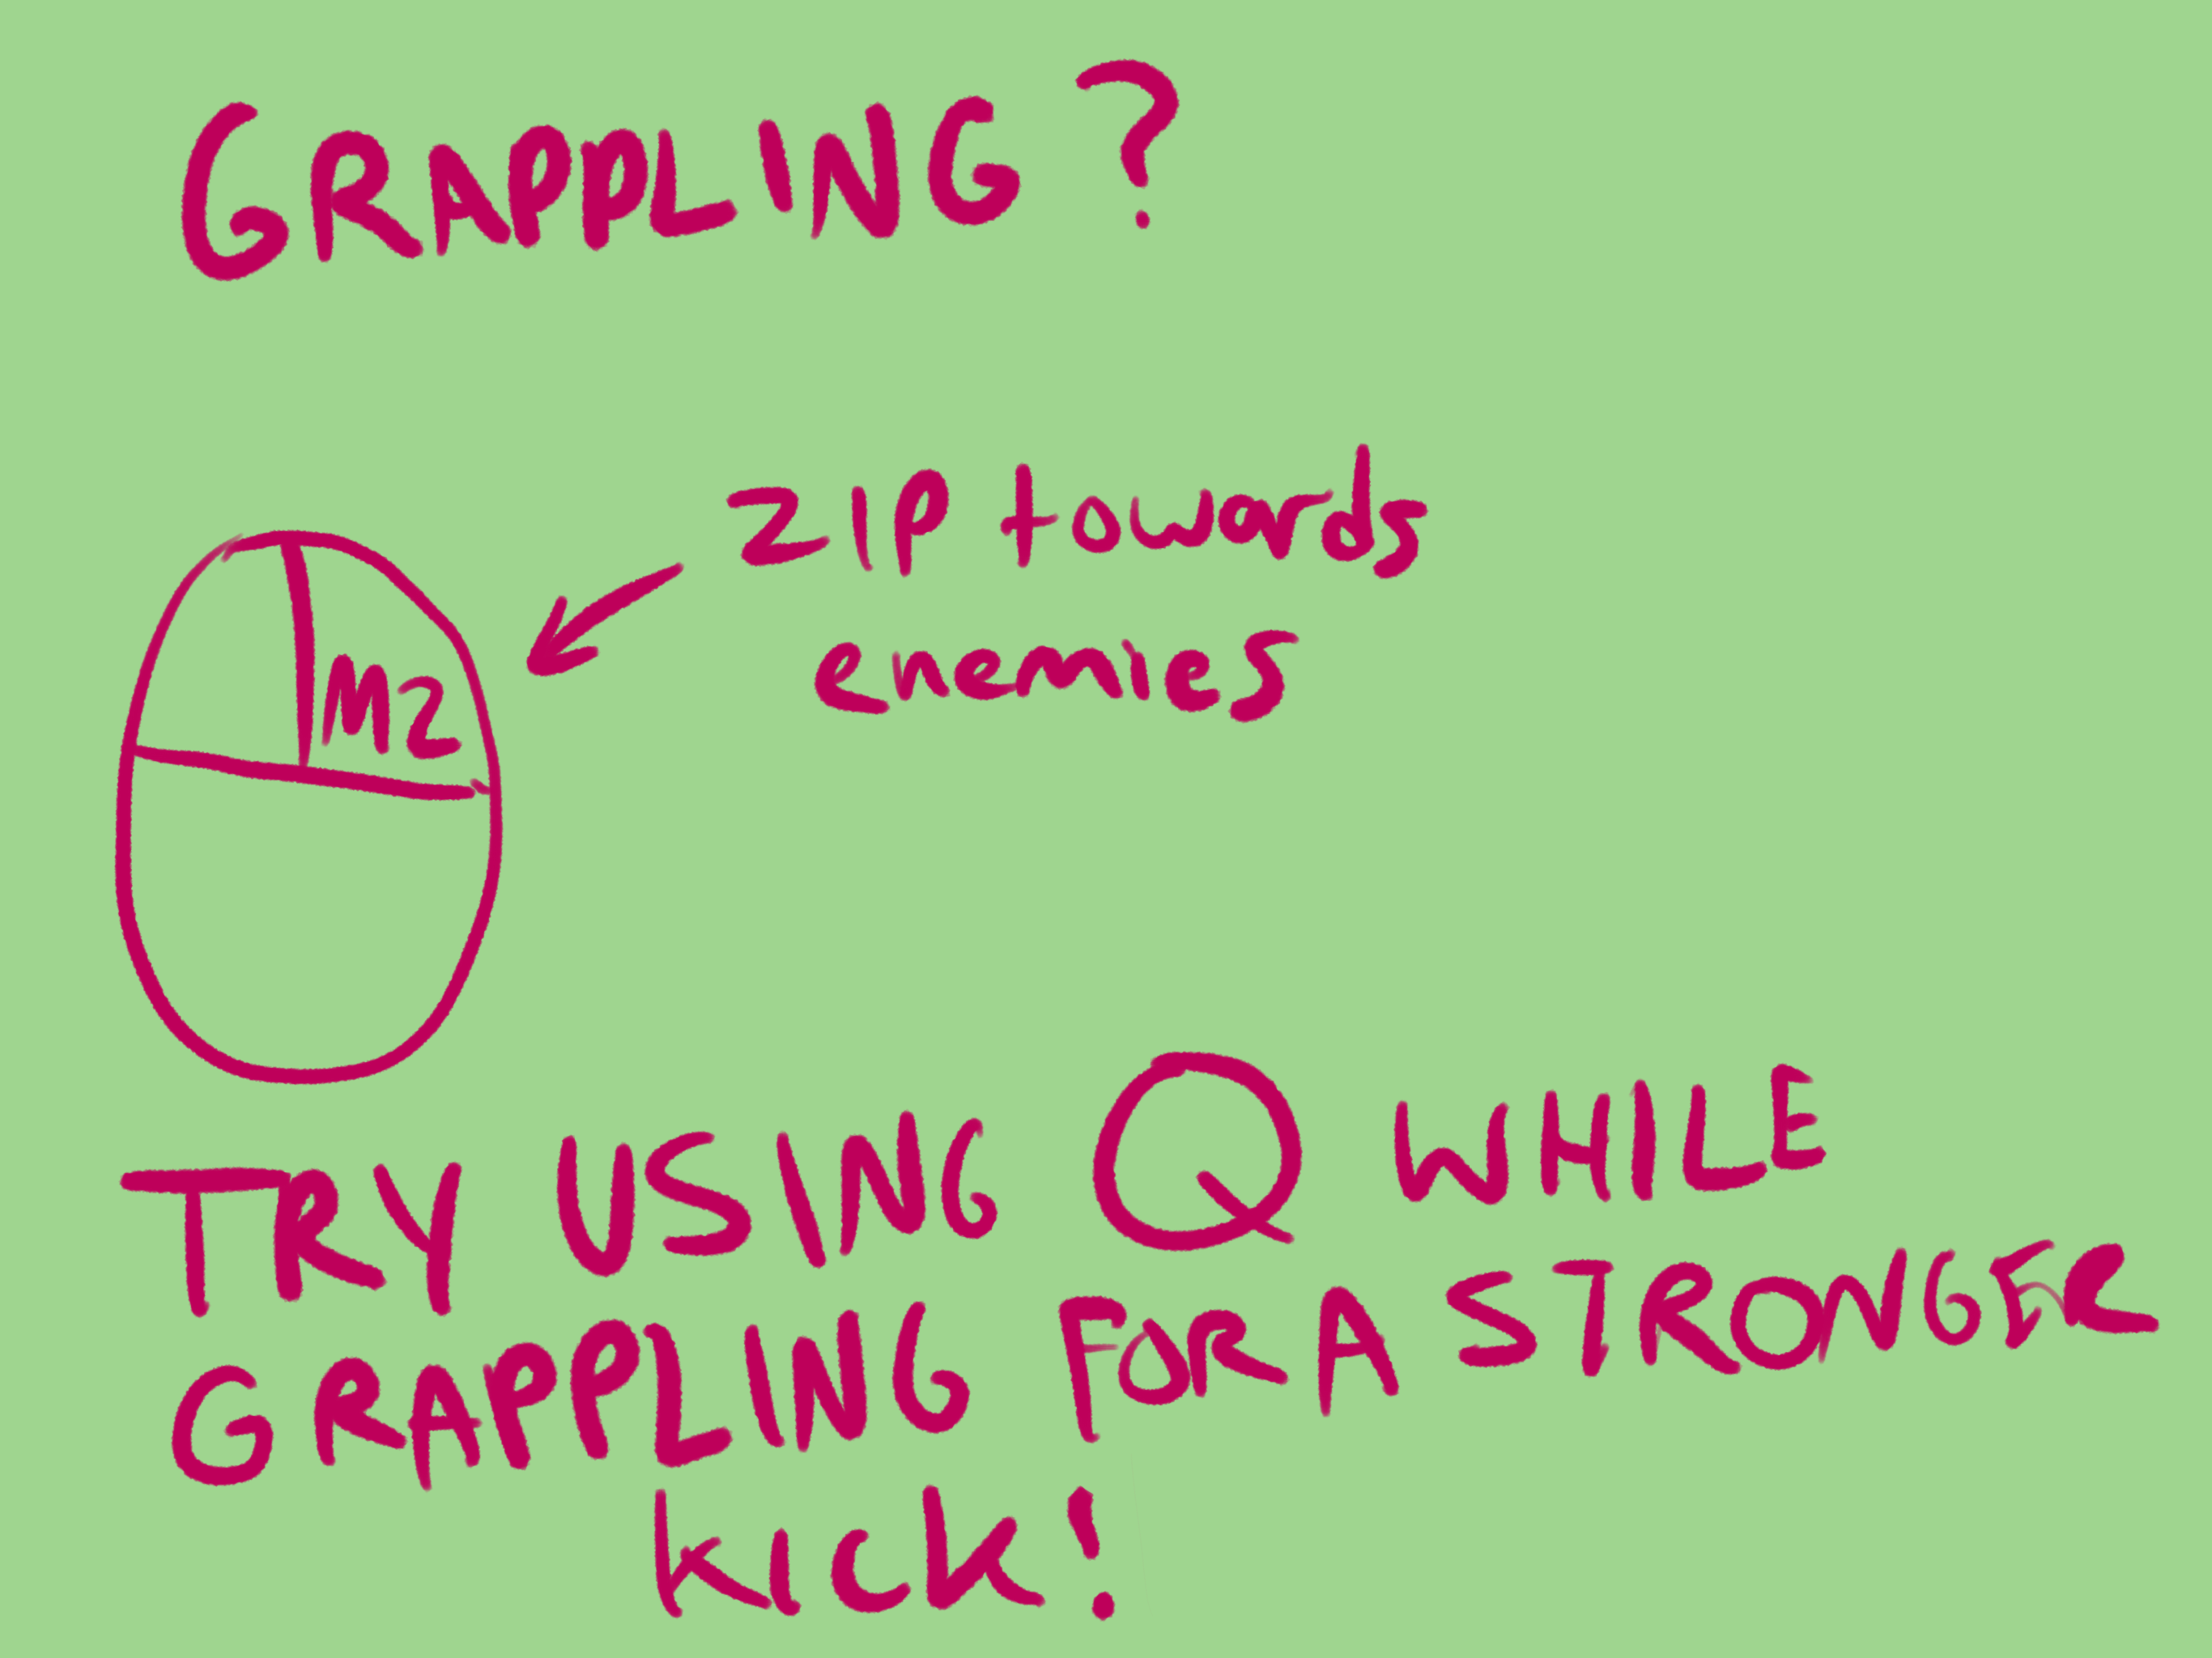 GRAPPLING?
ZIP towards
enemies
M2
TRY USING Q WHILE
GRAPPLING FOR A STRONGER
KICK!